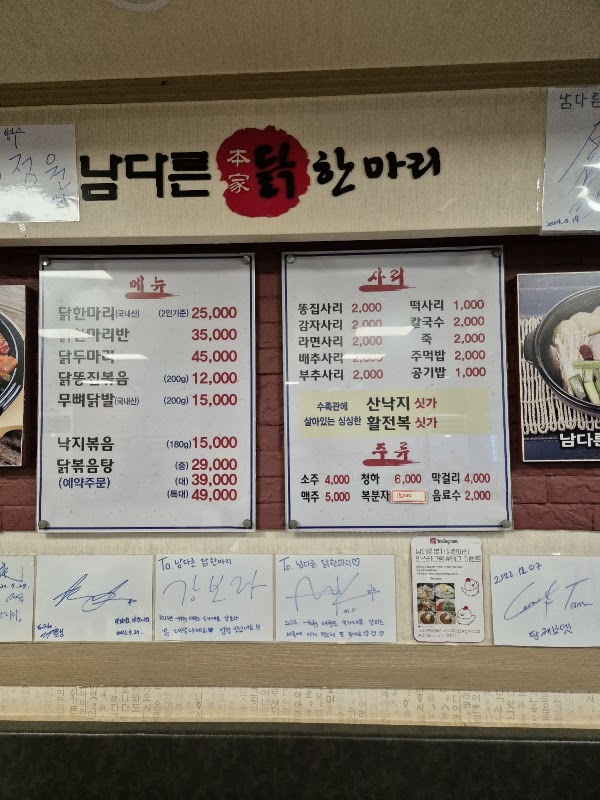 남다른 本家 닭 한마리
메뉴
닭한마리(국내산) (2인기준) 25,000
닭한마리반 35,000
닭두마리 45,000
닭똥집볶음 (200g) 12,000
무뼈닭발(국내산) (200g) 15,000
낙지볶음 (180g) 15,000
닭볶음탕 (중) 29,000
(예약주문) (대) 39,000
(특대) 49,000
사리
똥집사리 2,000 떡사리 1,000
감자사리 2,000 칼국수 2,000
라면사리 2,000 죽 2,000
배추사리 2,000 주먹밥 2,000
부추사리 2,000 공기밥 1,000
수족관에 살아있는 싱싱한
산낙지 싯가
활전복 싯가
주류
소주 4,000 청하 6,000 막걸리 4,000
맥주 5,000 복분자 음료수 2,000
남다른
남다른
2024.4.19
To. 남다른 닭한마리
강보라
To. 남다른 닭한마리♡
Instagram
2023.12.07